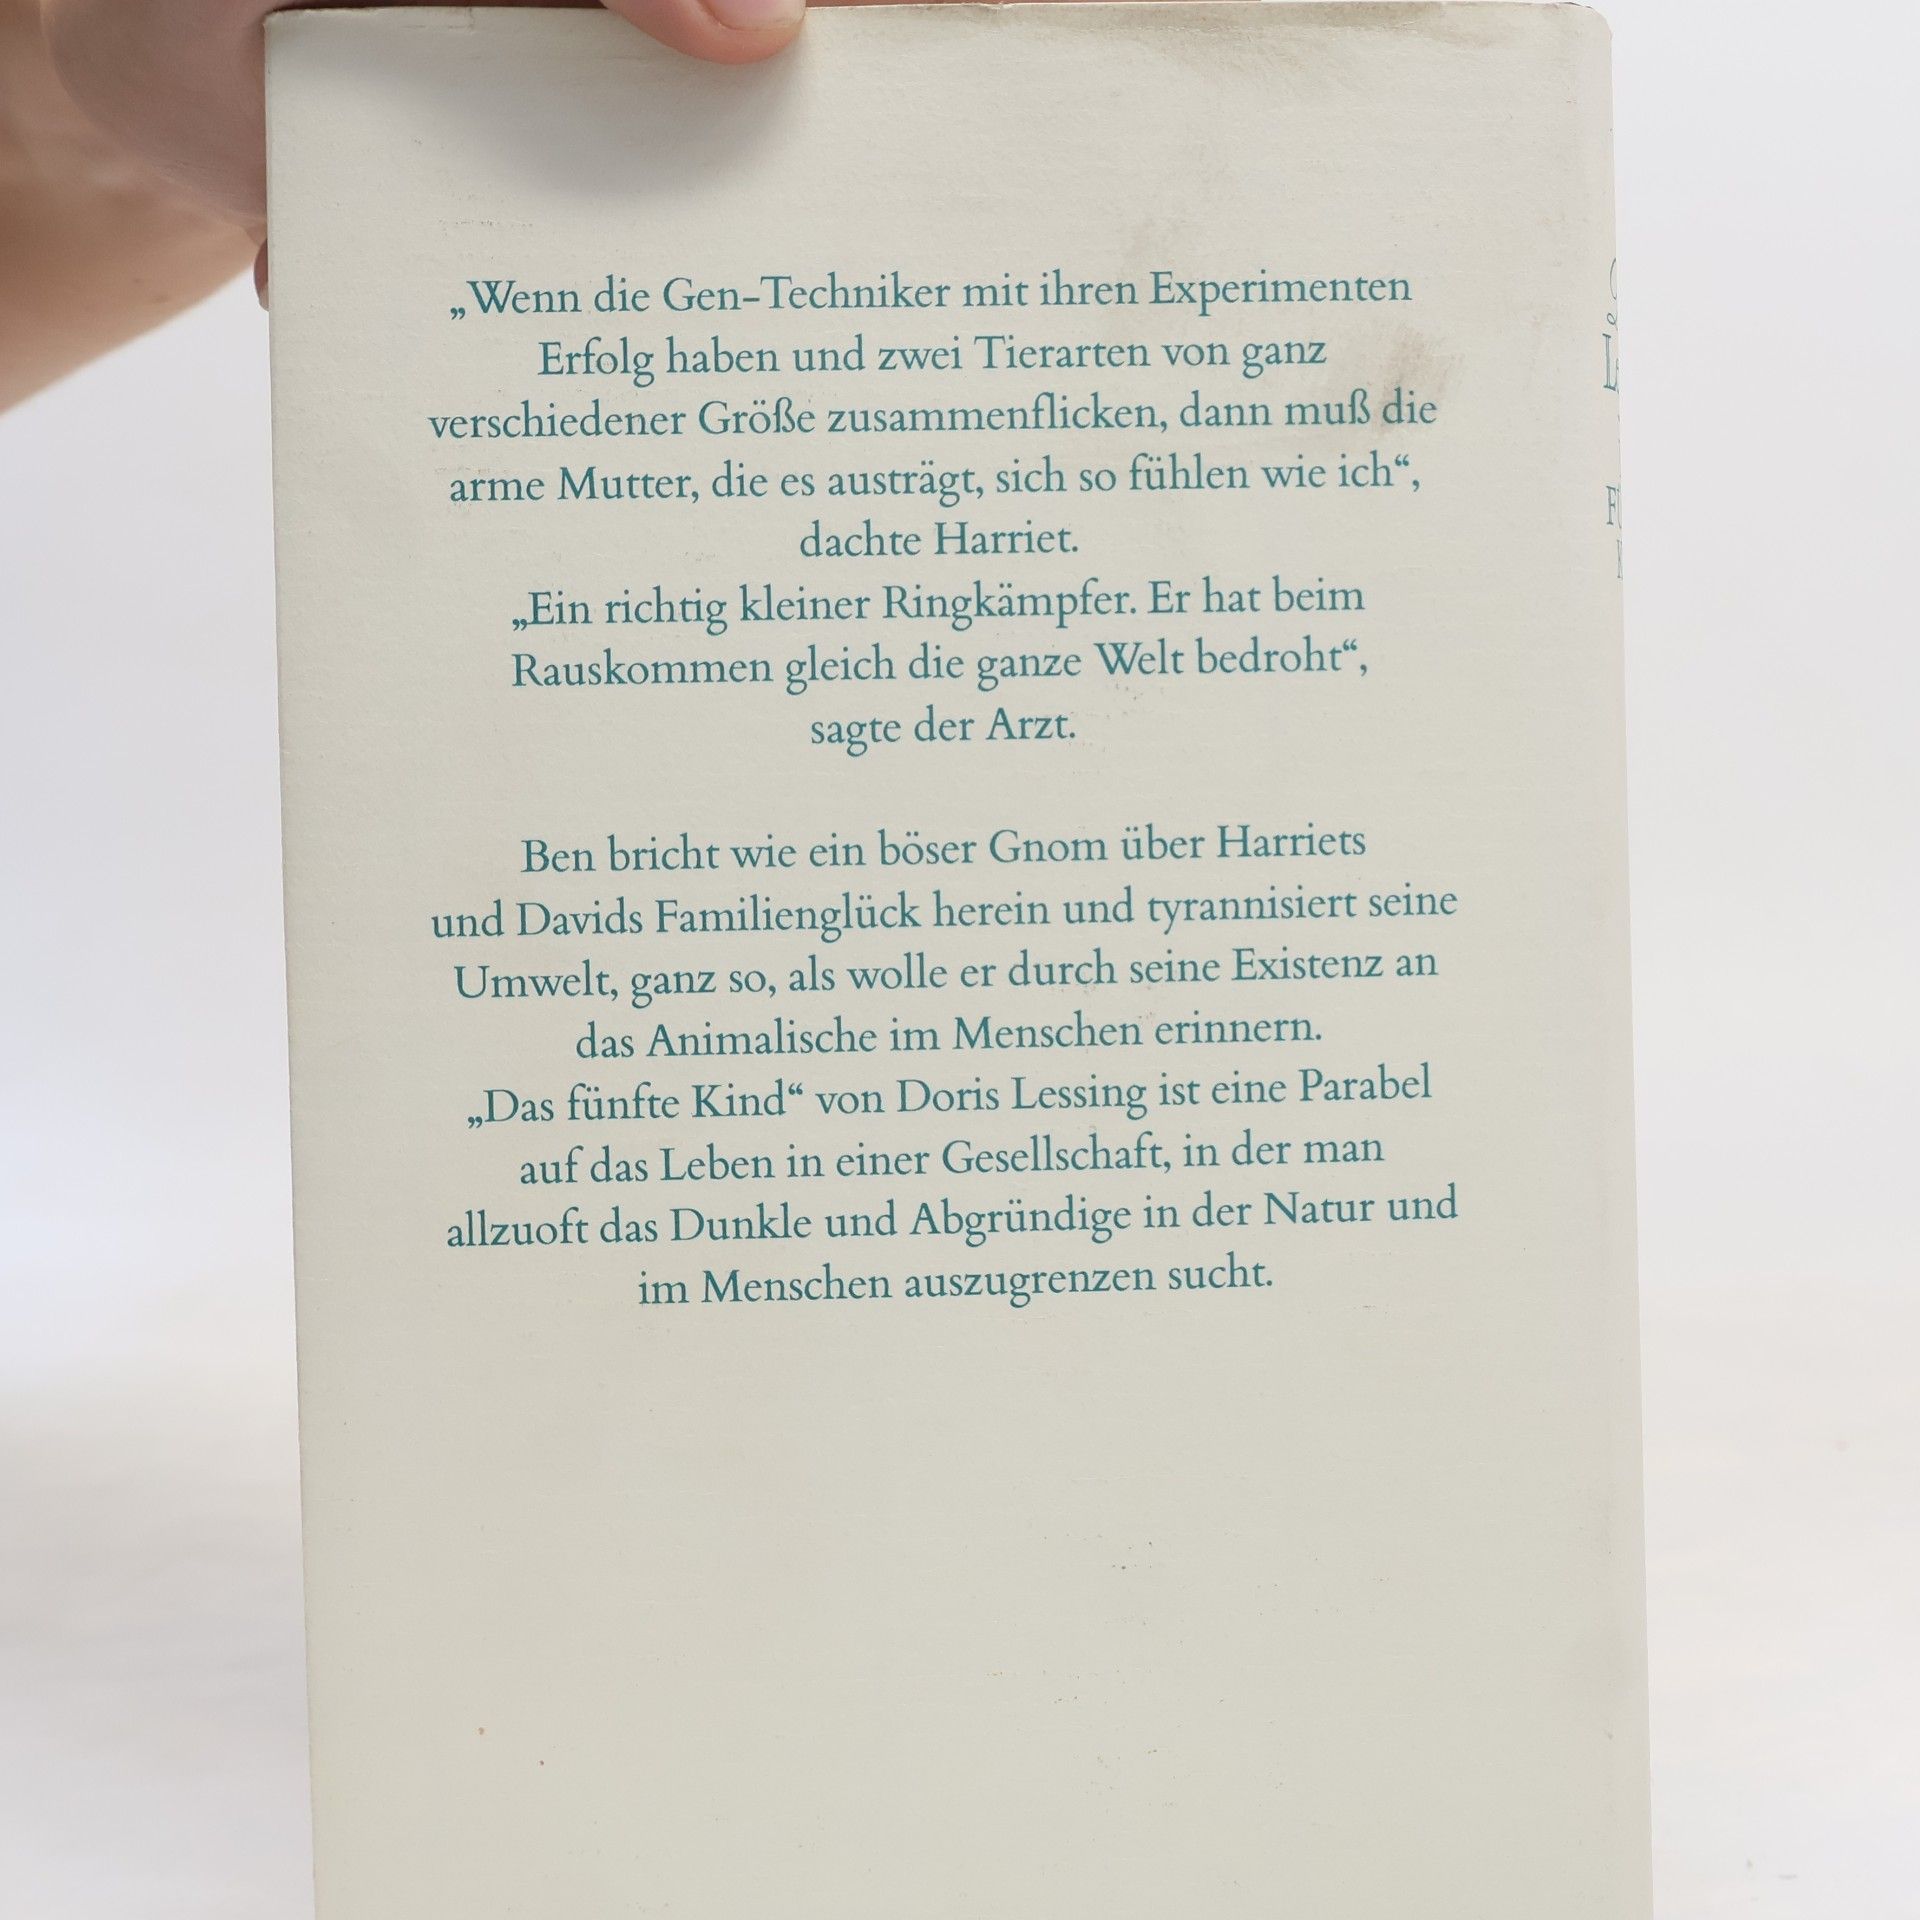 „Wenn die Gen-Techniker mit ihren Experimenten
Erfolg haben und zwei Tierarten von ganz
verschiedener Größe zusammenflicken, dann muß die
arme Mutter, die es austrägt, sich so fühlen wie ich“,
dachte Harriet.
„Ein richtig kleiner Ringkämpfer. Er hat beim
Rauskommen gleich die ganze Welt bedroht“,
sagte der Arzt.
Ben bricht wie ein böser Gnom über Harriets
und Davids Familienglück herein und tyrannisiert seine
Umwelt, ganz so, als wolle er durch seine Existenz an
das Animalische im Menschen erinnern.
„Das fünfte Kind“ von Doris Lessing ist eine Parabel
auf das Leben in einer Gesellschaft, in der man
allzuoft das Dunkle und Abgründige in der Natur und
im Menschen auszugrenzen sucht.